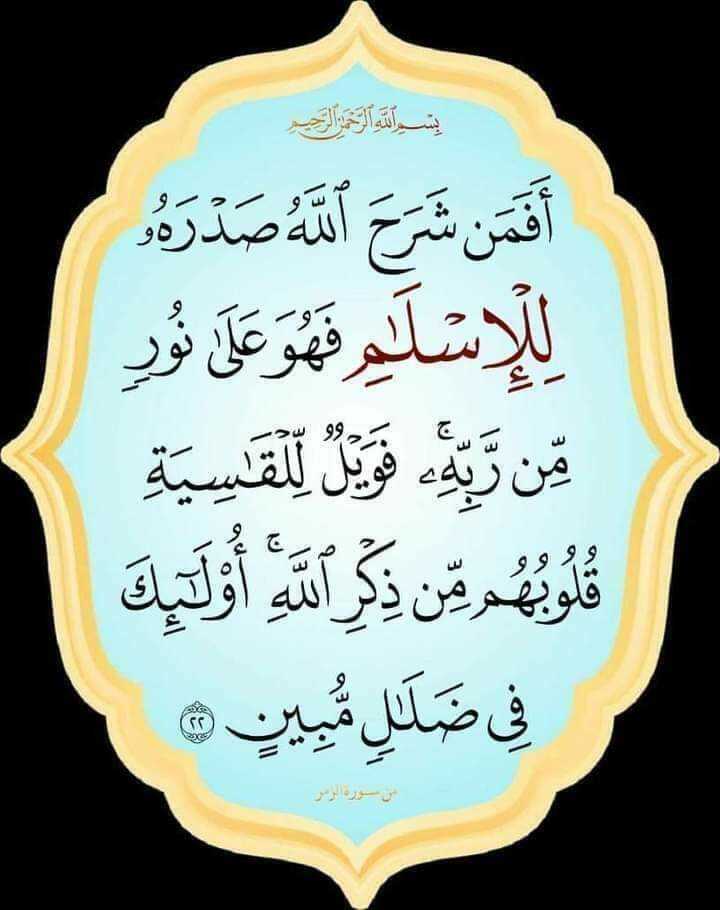 بِسْمِ ٱللَّهِ ٱلرَّحْمَٰنِ ٱلرَّحِيمِ
أَفَمَن شَرَحَ ٱللَّهُ صَدْرَهُۥ
لِلْإِسْلَٰمِ فَهُوَ عَلَىٰ نُورٍ
مِّن رَّبِّهِۦۚ فَوَيْلٌ لِّلْقَٰسِيَةِ
قُلُوبُهُم مِّن ذِكْرِ ٱللَّهِۚ أُو۟لَٰٓئِكَ
فِى ضَلَٰلٍ مُّبِينٍ ٢٢
من سورة الزمر